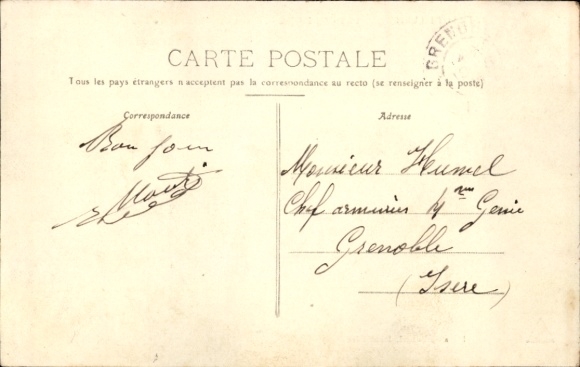 CARTE POSTALE
Tous les pays étrangers n'acceptent pas la correspondance au recto (se renseigner à la poste)
Correspondance
Adresse
GRENO
Bon jour
Monsieur
Chef armurier 4me Genie
Grenoble
(Isere)